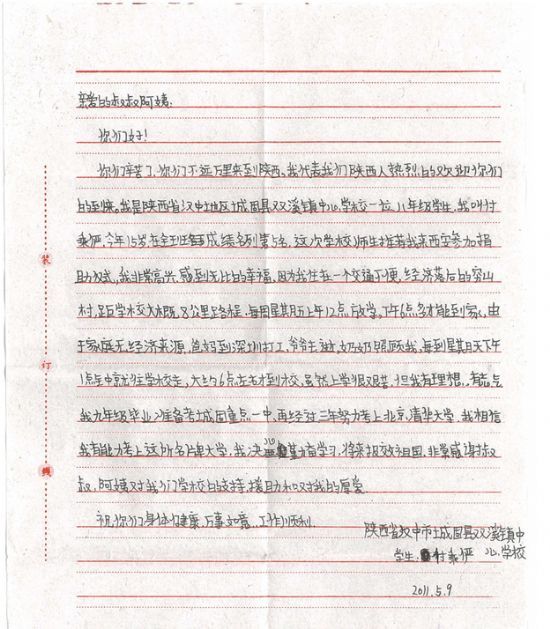 亲爱的叔叔阿姨:
你们好!
你们辛苦了,你们不远万里来到陕西,我代表我们陕西人热烈的欢迎你们
的到来。我是陕西省汉中地区城固县双溪镇中心学校一位八年级学生,我叫付
乘俨,今年15岁在全班成绩名列第5名,这次学校师生推荐我来西安参加捐
助仪式,我非常高兴,感到无比的幸福,因为我住在一个交通不便,经济落后的穷山
村,距学校大概8公里路程,每周星期五上午12点放学,下午6点多才能到家,由
于家庭无经济来源,爸妈到深圳打工,爷爷奶奶照顾我,每到星期天下午
1点就往学校走,大约6点左右才到校,虽然上学很艰苦,但我有理想,有志气
我九年级毕业准备考城固重点一中,再经过三年努力考上北京清华大学,我相信
我有能力考上这所名牌大学,我决心勤奋学习,将来报效祖国,非常感谢叔
叔,阿姨对我们学校的支持,援助和对我的厚爱。
祝你们身体健康 万事如意,工作顺利
陕西省汉中市城固县双溪镇中
心学校
学生:付乘俨
2011.5.9
装
订